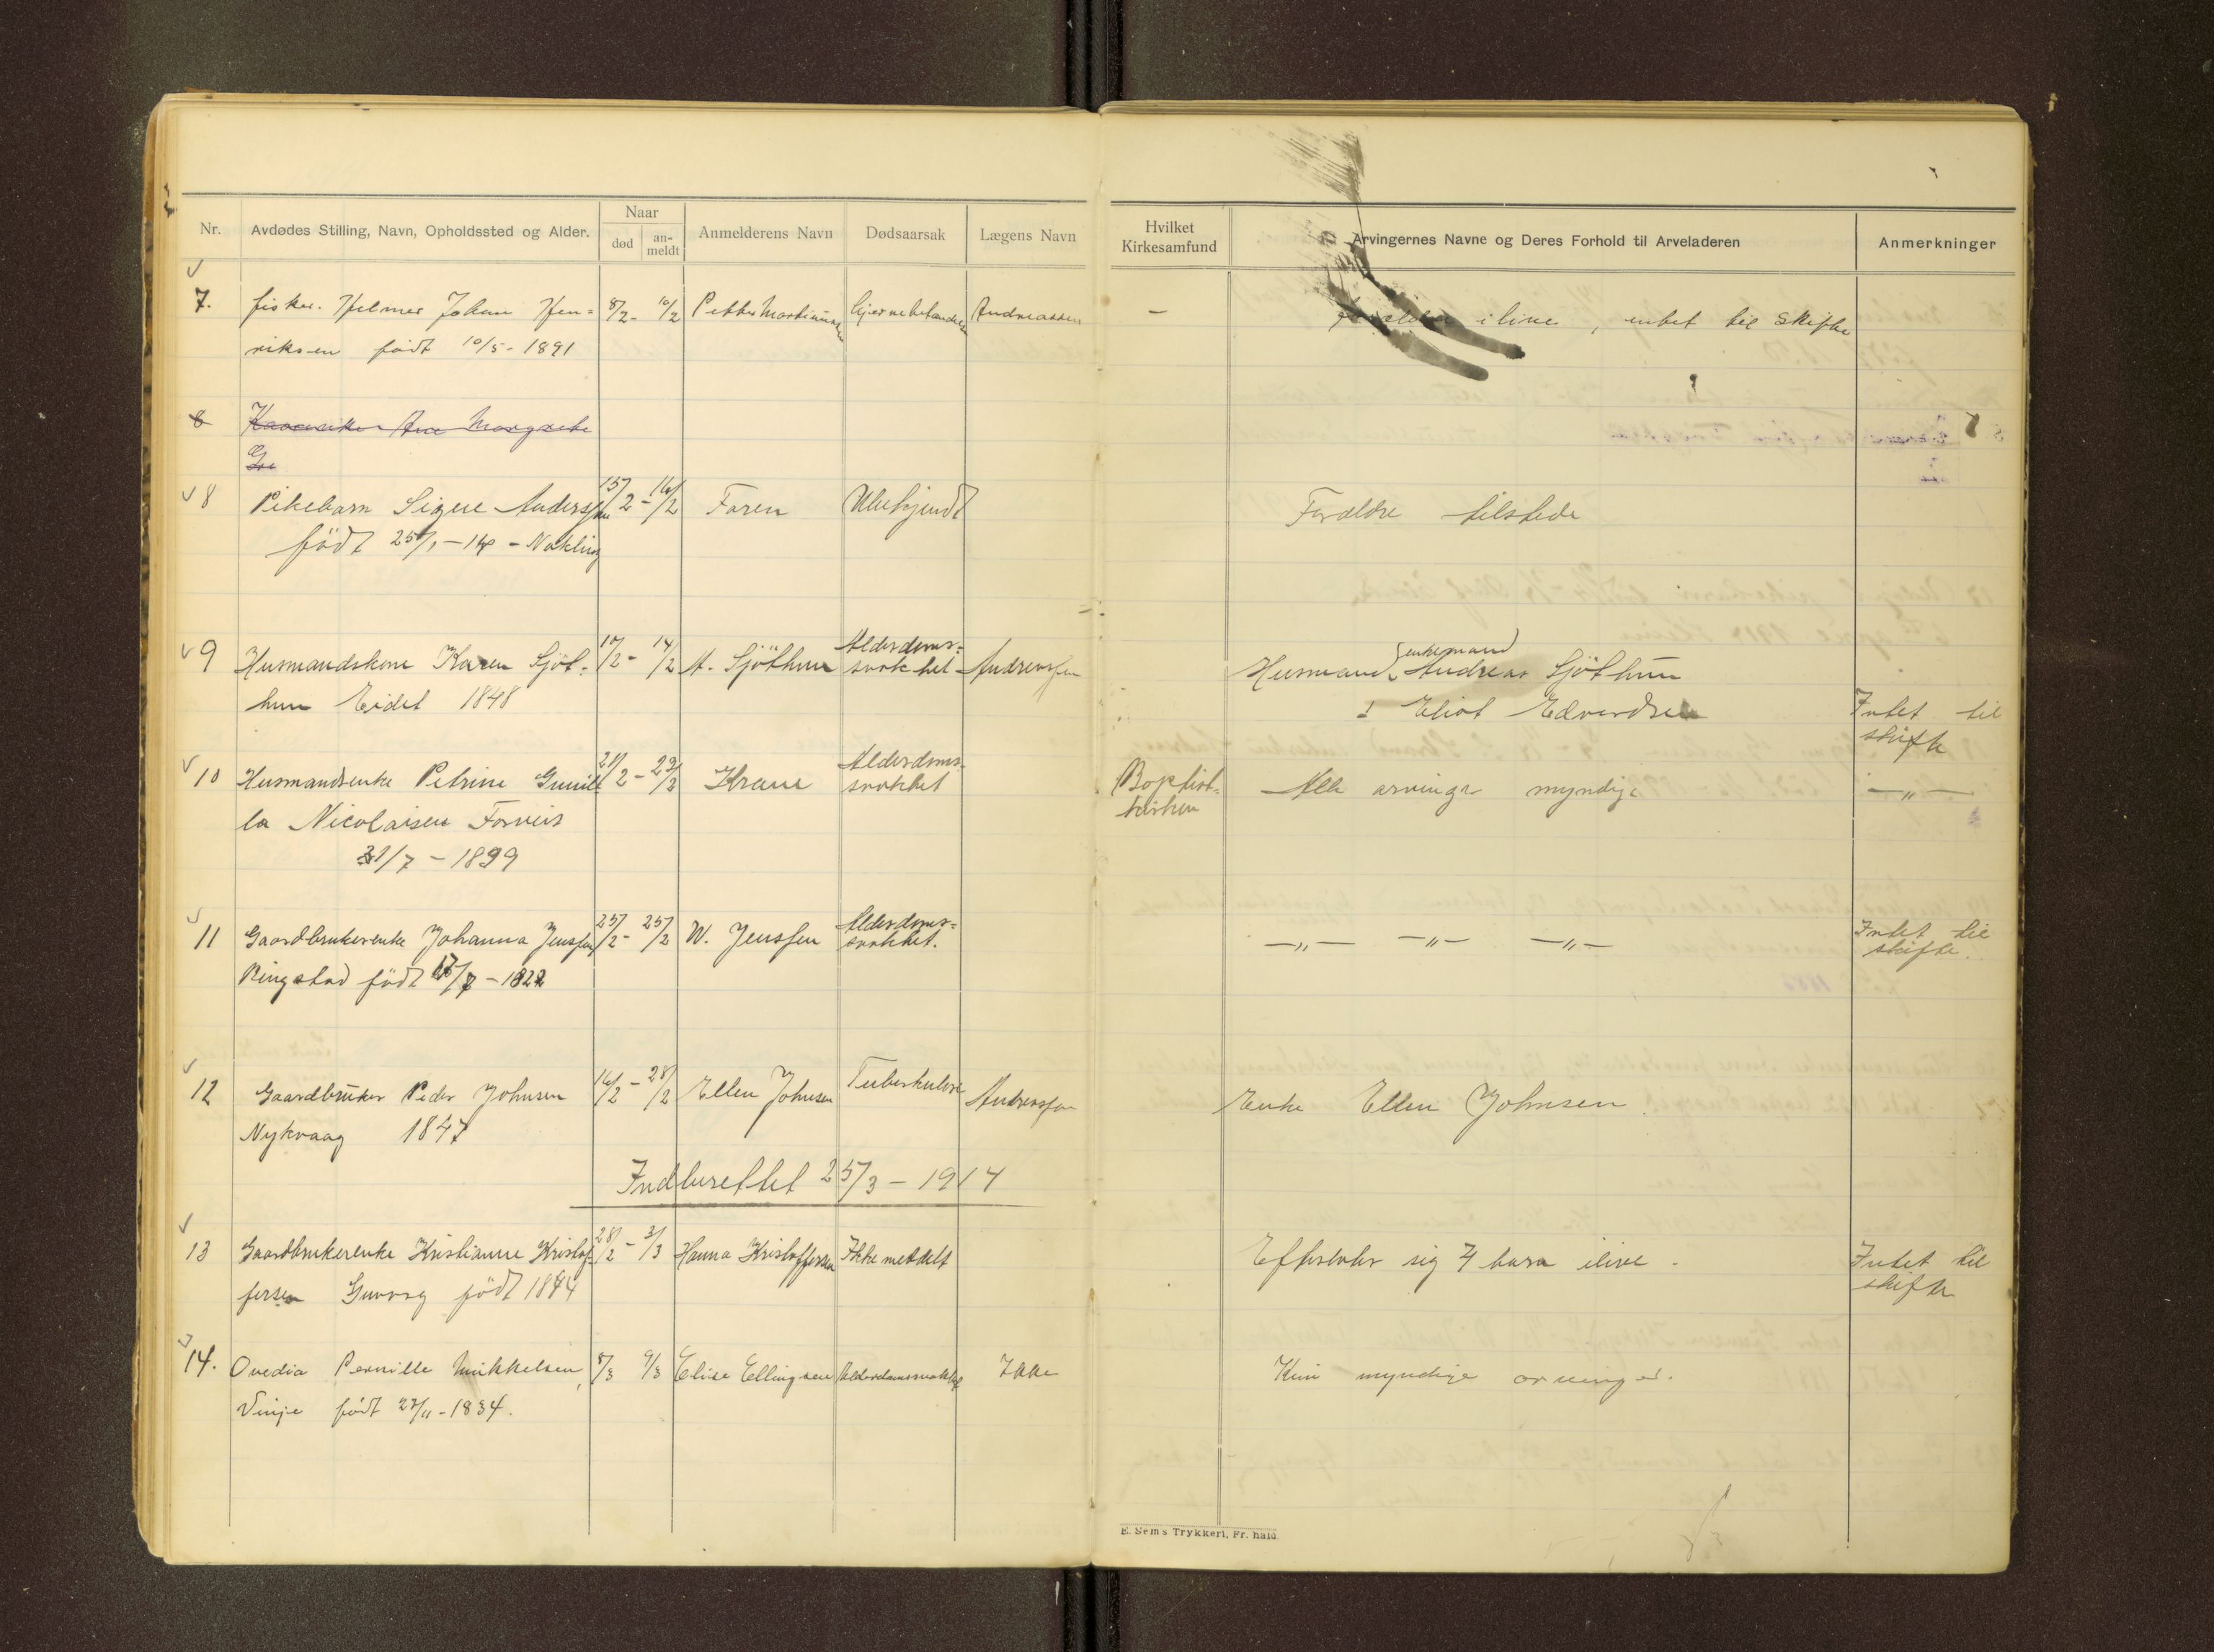 Nr. Avdødes Stilling, Navn, Opholdssted og Alder. Naar død an-meldt Anmelderens Navn Dødsaarsak Lægens Navn Hvilket Kirkesamfund Arvingernes Navne og Deres Forhold til Arveladeren Anmerkninger
7. fisker. Hilmer Johan Hen= 8/2- 10/2 Petter Martinussen Andreassen — i live, intet til skifte
riksen født 10/5 - 1891
8 Margrete
8 Pikebarn Signe Anderssen 15/2 - 16/2 Faren Ubekjendt Forældre tilstede
født 25/1 - 14 - Nøkling
9 Husmandskone Karen Sjöt= 10/2 - 14/2 A. Sjöthun Alderdoms=svakhet Andreassen Husmand, enkemand Andreas Sjöthun
hun Eidet 1848 Eliot Edvardsen Intet til skifte
10 Husmandsenke Petrine Gunil 21/2 - 23/2 Krane Alderdoms=svakhet Baptist=kirken Alle arvinger myndige —„—
la Nicolaisen Forneis
31/7 - 1899
11 Gaardbrukerenke Johanna Jenssen 25/2 - 25/2 W. Jenssen Alderdoms=svakhet. —„— —„— —„— Intet til skifte.
Ringstad født
12 Gaardbruker Peder Johnsen 16/2 - 28/2 Ellen Johnsen Tuberkulose Andreassen Enke Ellen Johnsen.
Nykvaag 1847
Indberettet 25/3 - 1914
13 Gaardbrukerenke Kristianne Kristof= 28/2 - 3/3 Hanna Kristoffersen Ikke meddelt Efterlater sig 7 barn ilive. Intet til skifte
fersen født 1844
14. Ovedia Pernille Mikkelsen, 8/3 9/3 Elise Ellingsen Alderdomssvakhet Ikke Kun myndige arvinger.
Vinje født 27/11 - 1834.
E. Sem's Trykkeri, Fr. hald.